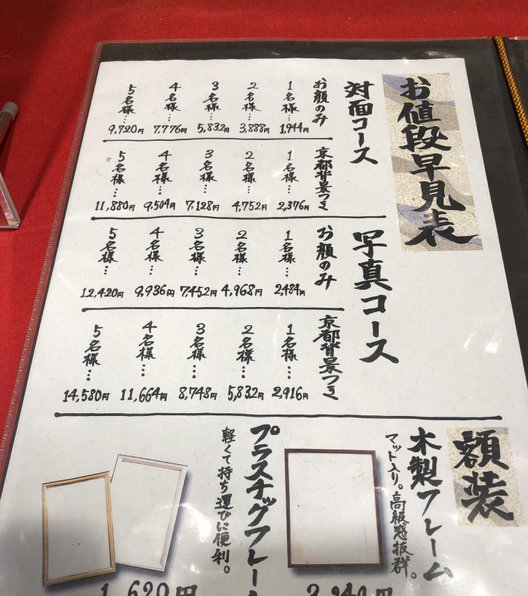 お値段早見表
対面コース
お顔のみ
1名様…1,944円
2名様…3,888円
3名様…5,832円
4名様…7,776円
5名様…9,720円
京都背景つき
1名様…2,376円
2名様…4,752円
3名様…7,128円
4名様…9,504円
5名様…11,880円
写真コース
お顔のみ
1名様…2,484円
2名様…4,968円
3名様…7,452円
4名様…9,936円
5名様…12,420円
京都背景つき
1名様…2,916円
2名様…5,832円
3名様…8,748円
4名様…11,664円
5名様…14,580円
額装
木製フレーム
マット入り。高級感抜群。
プラスチックフレー
軽くて持ち運びに便利。
1,620円